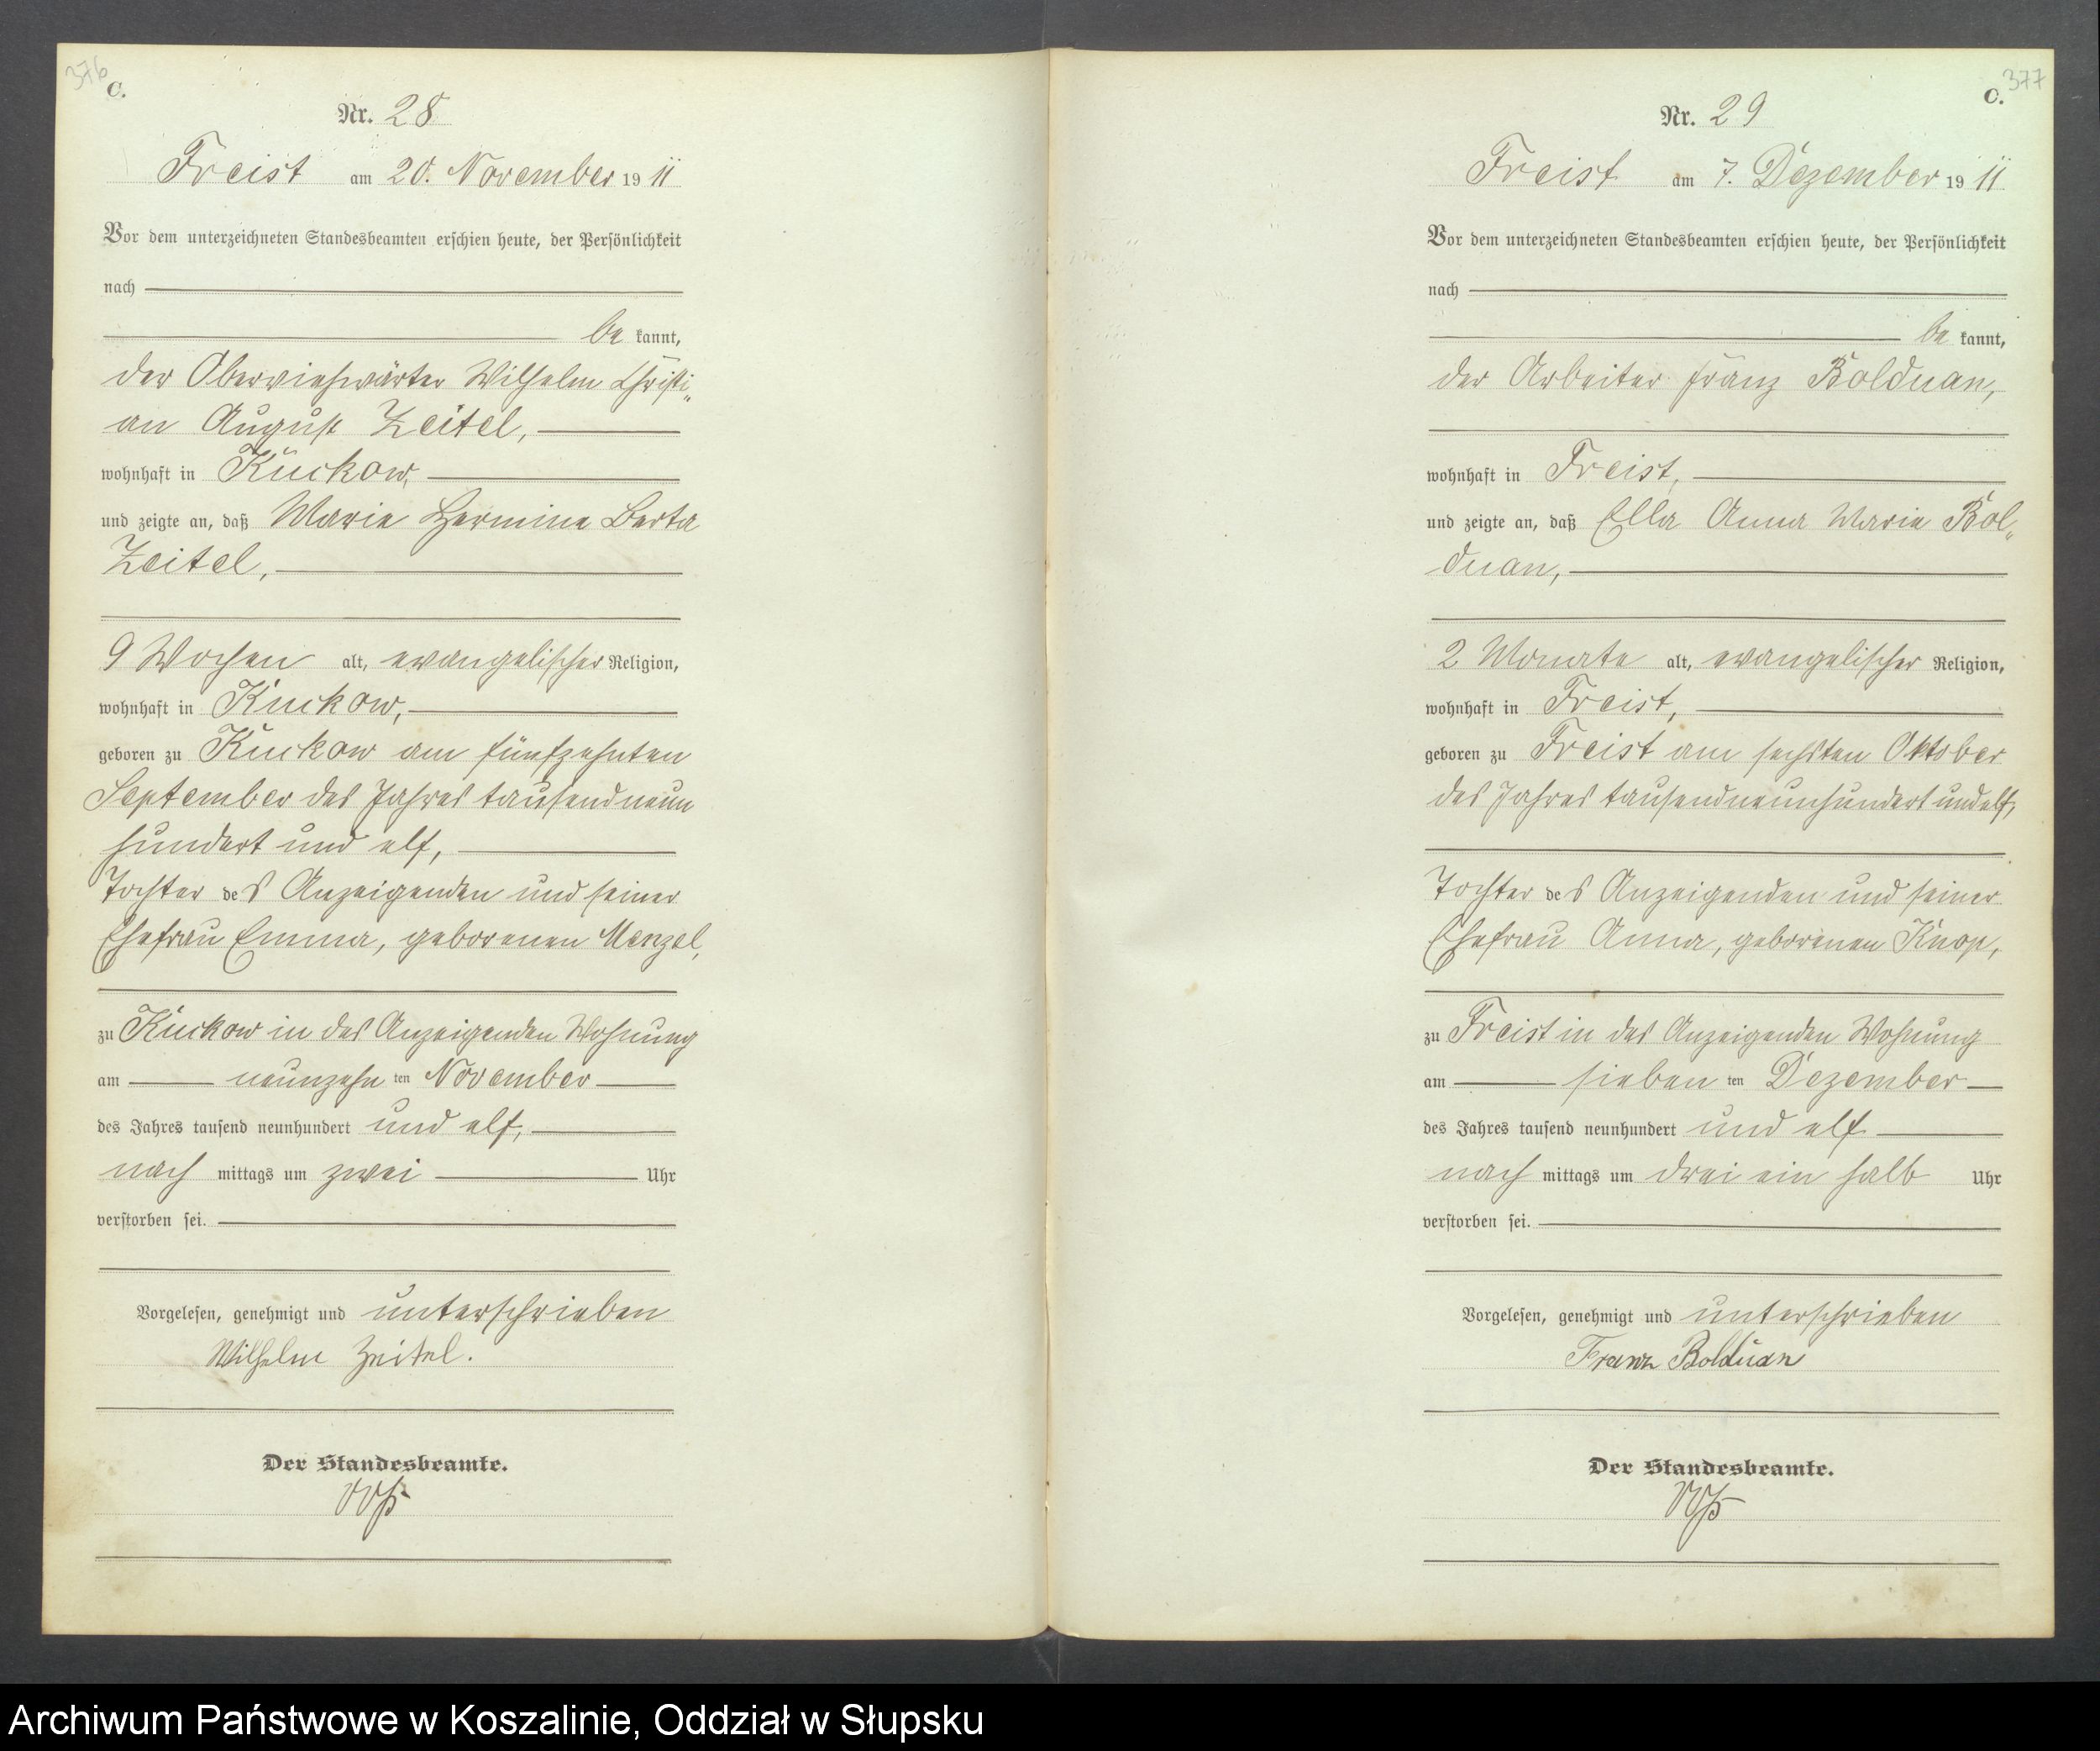 376
C.
Nr. 28
Freist am 20. November 1911
Vor dem unterzeichneten Standesbeamten erschien heute, der Persönlichkeit
nach
be kannt,
der Oberviehwärter Wilhelm Christi„
an August Zeitel,
wohnhaft in Kuckow,
und zeigte an, daß Marie Hermine Berta
Zeitel,
9 Wochen alt, evangelischer Religion,
wohnhaft in Kuckow,
geboren zu Kuckow am fünfzehnten
September des Jahres tausendneun
hundert und elf,
Tochter des Anzeigenden und seiner
Ehefrau Emma, geborenen Menzel,
zu Kuckow in des Anzeigenden Wohnung
am neunzehn ten November
des Jahres tausend neunhundert und elf,
nach mittags um zwei Uhr
verstorben sei.
Vorgelesen, genehmigt und unterschrieben
Wilhelm Zeitel.
Der Standesbeamte.
377
C.
Nr. 29
Freist am 7. Dezember 1911
Vor dem unterzeichneten Standesbeamten erschien heute, der Persönlichkeit
nach
be kannt,
der Arbeiter Franz Bolduan,
wohnhaft in Freist,
und zeigte an, daß Ella Anna Marie Bol„
duan,
2 Monate alt, evangelischer Religion,
wohnhaft in Freist,
geboren zu Freist am sechsten Oktober
des Jahres tausendneunhundert und elf,
Tochter des Anzeigenden und seiner
Ehefrau Anna, geborenen Knop,
zu Freist in des Anzeigenden Wohnung
am sieben ten Dezember
des Jahres tausend neunhundert und elf
nach mittags um drei ein halb Uhr
verstorben sei.
Vorgelesen, genehmigt und unterschrieben
Franz Bolduan
Der Standesbeamte.
Archiwum Państwowe w Koszalinie, Oddział w Słupsku